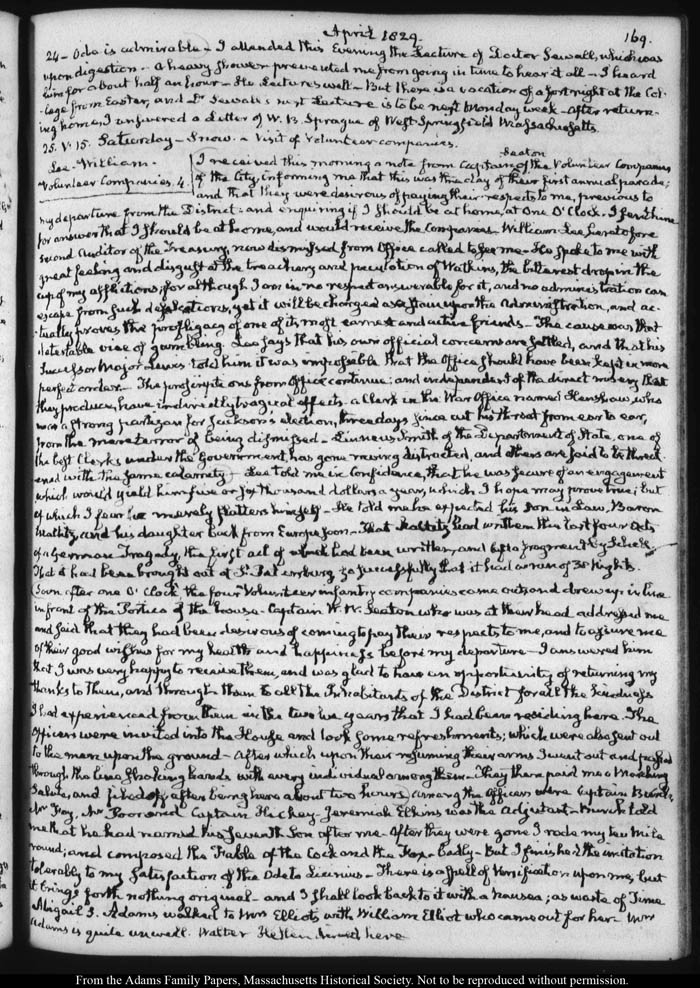 April 1829.
169.
24 - Ode is admirable - I attended this Evening the Lecture of Doctor Sewall, which was
upon digestion - a heavy shower prevented me from going in time to hear it all - I heard
him for about half an hour - He Lectures well - But there is a vacation of a fortnight at the Col-
-lege from Easter, and Dr Sewall's next Lecture is to be next Monday week - After return-
ing home, I answered a Letter of W. B. Sprague of West Springfield Massachusetts.
25. V. 15. Saturday - Snow - Visit of Volunteer companies.
Lee - William.
Volunteer Companies. 4.
I received this morning a note from Captain Seaton of the Volunteer Companies
of the City, informing me that this was the day of their first annual parade;
and that they were desirous of paying their respects to me, previous to
my departure from the District: and enquiring if I should be at home, at One O'Clock. I sent him
for answer that I should be at home, and would receive the Companies - William Lee, heretofore
second Auditor of the Treasury, now dismissed from Office called to see me - He spoke to me with
great feeling and disgust at the treachery and peculation of Watkins, the bitterest drop in the
cup of my afflictions; for although I am in no respect answerable for it, and no administration can
escape from such defalcations, yet it will be charged as a stain upon the Administration, and ac-
-tually proves the profligacy of one of its most earnest and active friends - The cause was that
detestable vice of gambling. Lee says that his own official concerns are settled, and that his
successor Major Lewis told him it was impossible that the Office should have been kept in more
perfect order - The proscriptions from Office continue; and independent of the direct misery that
they produce, have indirectly tragical effects - a Clerk in the War Office named Henshaw, who
was a strong partizan for Jackson's election, three days since cut his throat from ear to ear,
from the mere terror of being dismissed - Linneus Smith of the Department of State, one of
the best Clerks under the Government, has gone raving distracted, and others are said to be threat-
-ened with the same calamity - Lee told me in confidence, that he was secure of an engagement
which would yield him five or six thousand dollars a year, which I hope may prove true; but
of which I fear he merely flatters himself - He told me he expected his Son in Law, Baron
Maltitz, and his daughter back from Europe soon - That Maltitz had written the last four Acts
of a German Tragedy, the first act of which had been written, and left a fragment by Schiller
That it had been brought out at St. Petersburg so successfully that it had a run of 30 Nights.
Soon after one O'Clock the four Volunteer infantry companies came out and drew up in line
in front of the Portico of the house - Captain W. W. Seaton who was at their head addressed me
and said that they had been desirous of coming to pay their respects to me, and to assure me
of their good wishes for my health and happiness before my departure - I answered him
that I was very happy to receive them, and was glad to have an opportunity of returning my
thanks to them, and through them to all the Inhabitants of the District for all the kindness
I had experienced from them in the twelve years that I had been residing here. The
Officers were invited into the House and took some refreshments; which were also sent out
to the men upon the ground - After which upon their resuming their arms I went out and passed
through the line shaking hands with every individual among them - They then paid me a Marching
Salute, and filed off after being here about two hours. Among the Officers were Captain Burch
Mr Hoy, Mr Poor and Captain Hickey - Jeremiah Elkins was the Adjutant - Burch told
me that he had named his seventh Son after me - After they were gone I rode my ten mile
round; and composed the Fable of the Cock and the Fox - badly - But I finished the imitation
tolerably to my satisfaction of the Ode to Licinius - There is a spell of Versification upon me, but
it brings forth nothing original - and I shall look back to it with a nausea; as waste of Time
Abigail S. Adams walked to Mrs Elliot's with William Elliot who came out for her. Mrs
Adams is quite unwell. Walter Hellen dined here
From the Adams Family Papers, Massachusetts Historical Society. Not to be reproduced without permission.